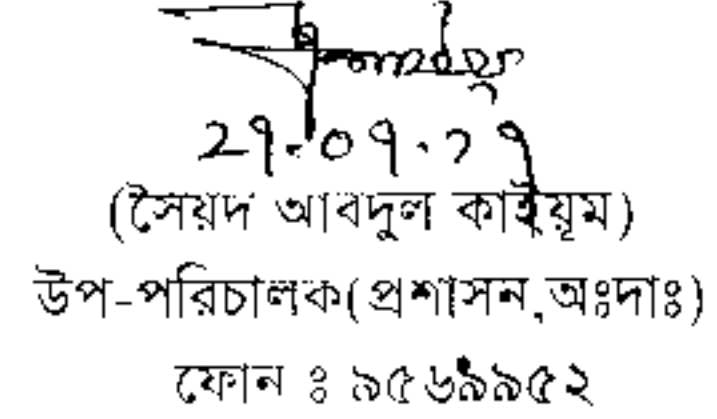 ২৭.০৭.১৭
(সৈয়দ আবদুল কাইয়ূম)
উপ-পরিচালক(প্রশাসন,অঃদাঃ)
ফোন ঃ ৯৫৬৯৯৫২